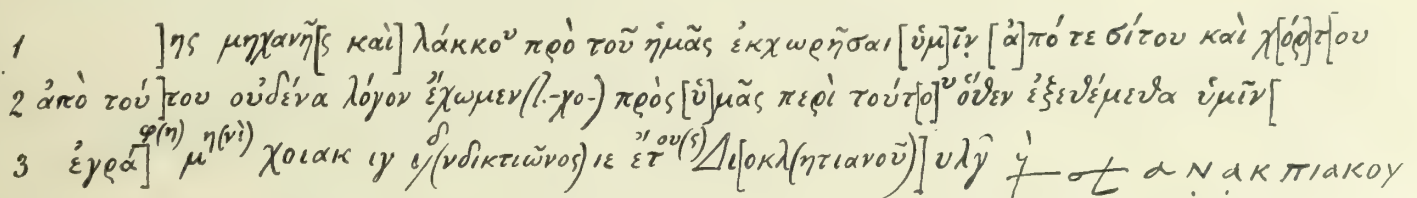 1 ]ης μηχανῆ[ς καὶ] λάκκου πρὸ τοῦ ἡμᾶς ἐκχωρῆσαι [ὑμ]ῖν [ἀ]πό τε σίτου καὶ χ[όρ]τ[ου
2 ἀπὸ τού]του οὐδένα λόγον ἔχωμεν (l. -χο-) πρὸς [ὑ]μᾶς περὶ τούτ[ο]υ ὅθεν ἐξεθέμεθα ὑμῖν [
3 ἐγρά]φ(η) μη(νὶ) χοιακ ιγ ἰνδ(ικτιῶνος) ιε ἔτου(ς) Δι[οκλ(ητιανοῦ)] υλγ